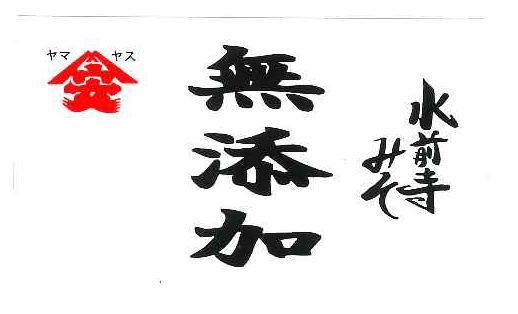 水前寺
みそ
無添加
ヤマ ヤス
安